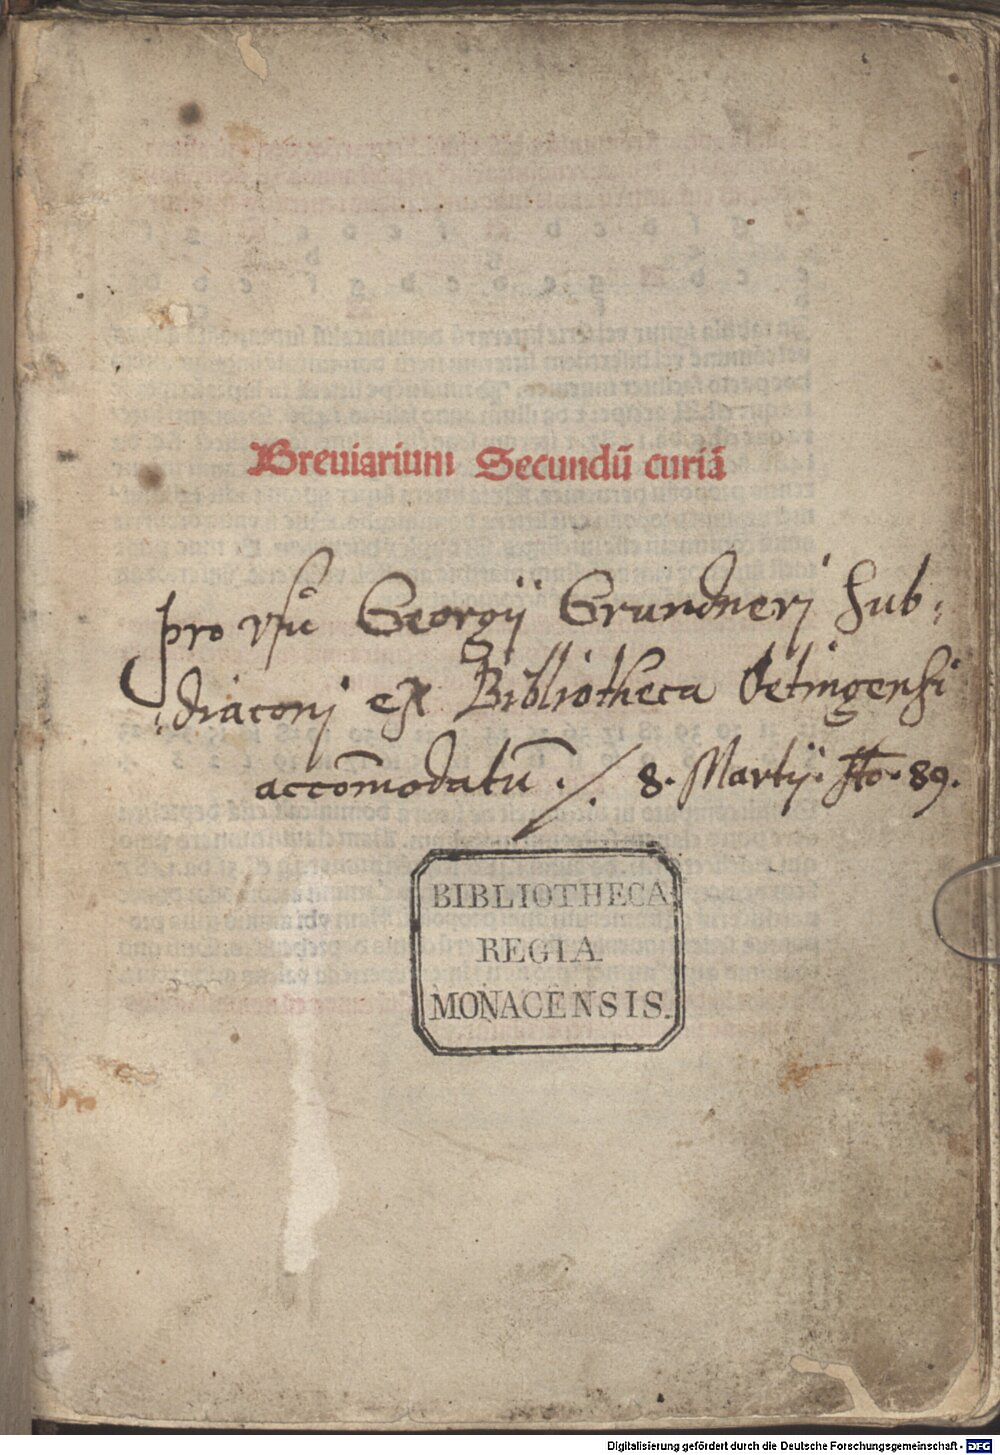 Breuiarium Secundū curiā
pro vsu Georgij Grundneri sub:
:diaconi ex Bibliotheca Oetingensi
accom̄odatū. /. 8. Martij. Ao. 89.
BIBLIOTHECA
REGIA
MONACENSIS.
Digitalisierung gefördert durch die Deutsche Forschungsgemeinschaft - DFG